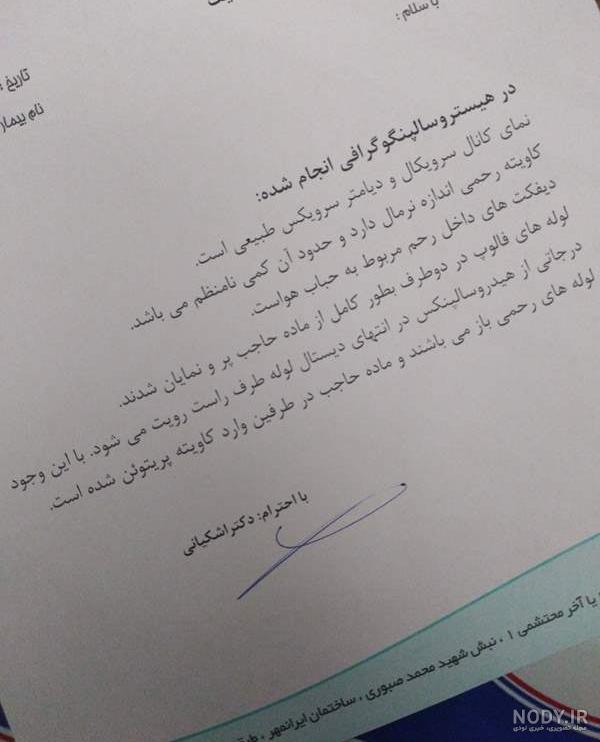 با سلام :
تاریخ :
نام بیمار
در هیستروسالپنگوگرافی انجام شده:
نمای کانال سرویکال و دیامتر سرویکس طبیعی است.
کاویته رحمی اندازه نرمال دارد و حدود آن کمی نامنظم می باشد.
دیفکت های داخل رحم مربوط به حباب هواست.
لوله های فالوپ در دوطرف بطور کامل از ماده حاجب پر و نمایان شدند.
درجاتی از هیدروسالپنکس در انتهای دیستال لوله طرف راست رویت می شود. با این وجود
لوله های رحمی باز می باشند و ماده حاجب در طرفین وارد کاویته پریتوئن شده است.
با احترام: دکتراشکیانی
یا آخر محتشمی ۱ ، نبش شهید محمد صبوری ، ساختمان ایرانمهر ،
NODY.IR
مجله تصویری، خبری نودی